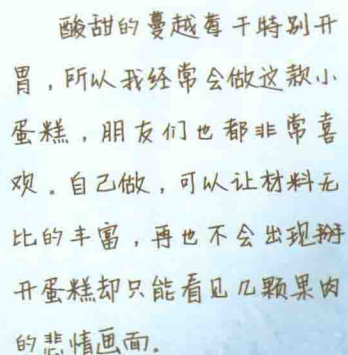 酸甜的蔓越莓干特别开
胃，所以我经常会做这款小
蛋糕，朋友们也都非常喜
欢。自己做，可以让材料无
比的丰富，再也不会出现掰
开蛋糕却只能看见几颗果肉
的悲情画面。